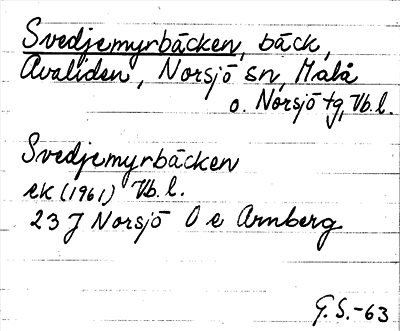 Svedjemyrbäcken, bäck,
Avaliden, Norsjö sn, Malå
o. Norsjö tg, Vb.l.
Svedjemyrbäcken
ek (1961) Vb.l.
23 J Norsjö O e Arnberg
G.S.-63